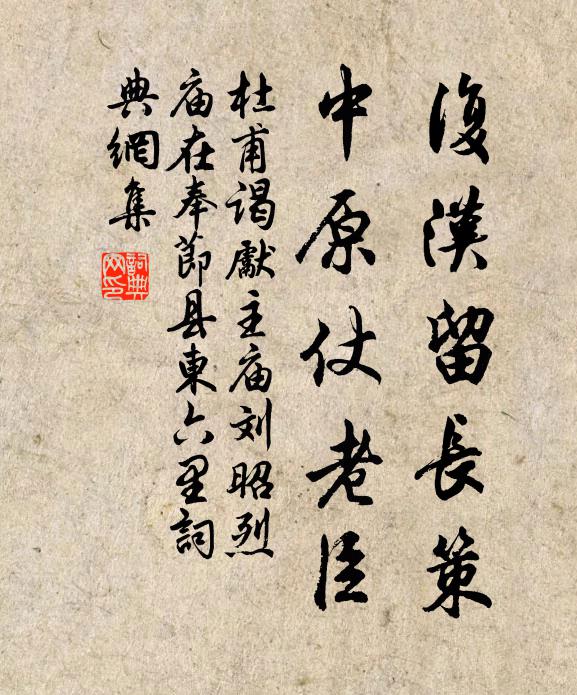 復漢留長策
中原仗老臣
杜甫谒獻主庙刘昭烈
庙在奉節县東六里詞
典網集
詞典
网印